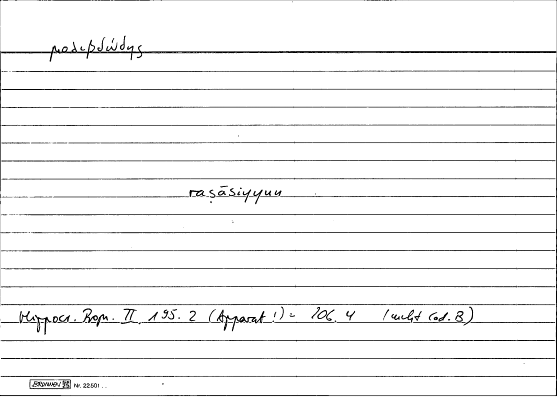 μολιβδώδης
raṣāṣiyyun
Hippocr. Progn. II 195. 2 (Apparat!) = 206. 4 (nicht Cod. B)
BRUNNEN Nr. 22 501